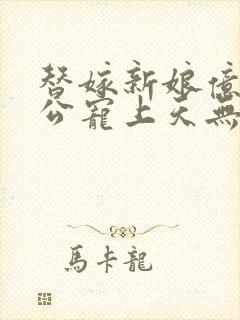 替嫁新娘億
公寵上天無
馬卡龍